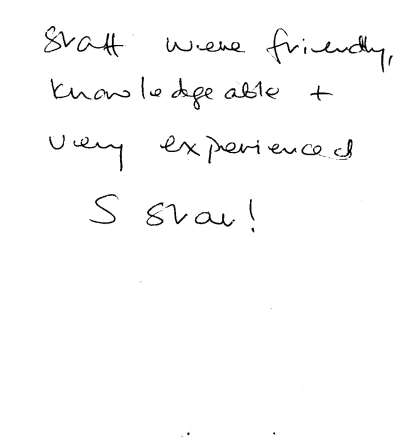 Staff were friendly,
knowledgeable +
very experienced
5 star!